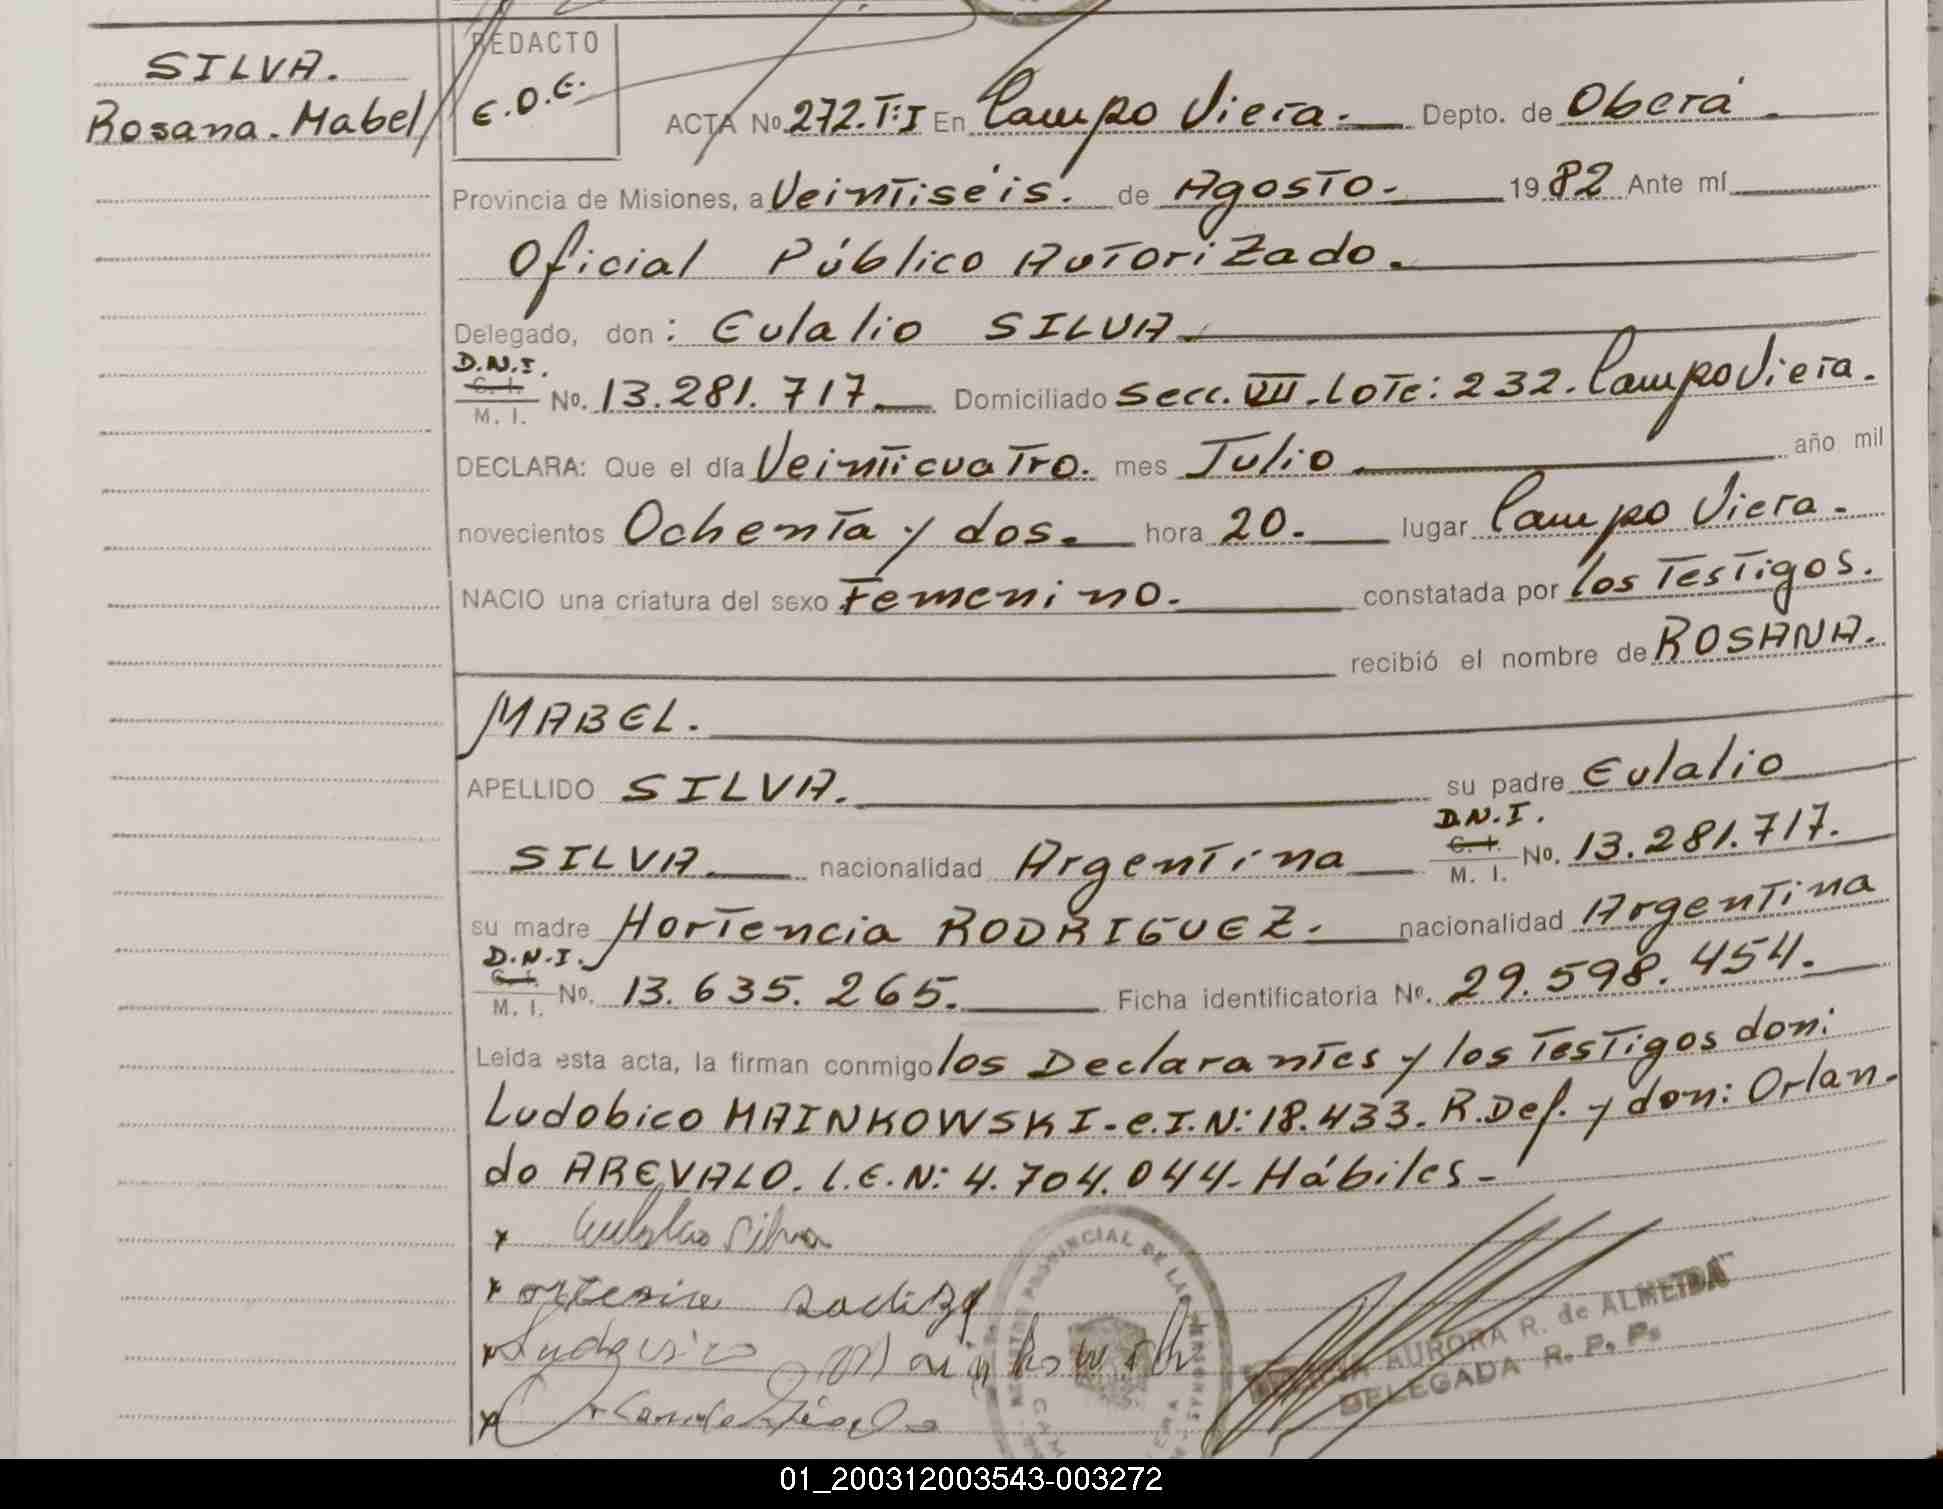 SILVA.
Rosana. Mabel
REDACTO
E.D.E.
ACTA No. 272.T:I En Campo Viera. Depto. de Oberá.
Provincia de Misiones, a Veintiséis. de Agosto. 1982 Ante mí
Oficial Público Autorizado.
Delegado, don: Eulalio SILVA
D.N.I.
C. I.
M. I.
No. 13.281.717. Domiciliado Secc. VII. Lote: 232. Campo Viera.
DECLARA: Que el día Veinticuatro. mes Julio. año mil
novecientos Ochenta y dos. hora 20. lugar Campo Viera.
NACIO una criatura del sexo Femenino. constatada por los Testigos.
recibió el nombre de ROSANA.
MABEL.
APELLIDO SILVA. su padre Eulalio
SILVA. nacionalidad Argentina
D.N.I.
C. I.
M. I.
No. 13.281.717.
su madre Hortencia RODRIGUEZ. nacionalidad Argentina
D.N.I.
C. I.
M. I.
No. 13.635.265. Ficha identificatoria No. 29.598.454.
Leida esta acta, la firman conmigo los Declarantes y los Testigos don:
Ludobico MAINKOWSKI - C.I.N: 18.433. R.Def. y don: Orlan-
do AREVALO. L.E.N: 4.704.044- Hábiles -
x Eulalio Silva
x
x
x
REGISTRO PROVINCIAL DE LAS PERSONAS
AURORA R. de ALMEIDA
DELEGADA R. P. Ps
01_200312003543-003272